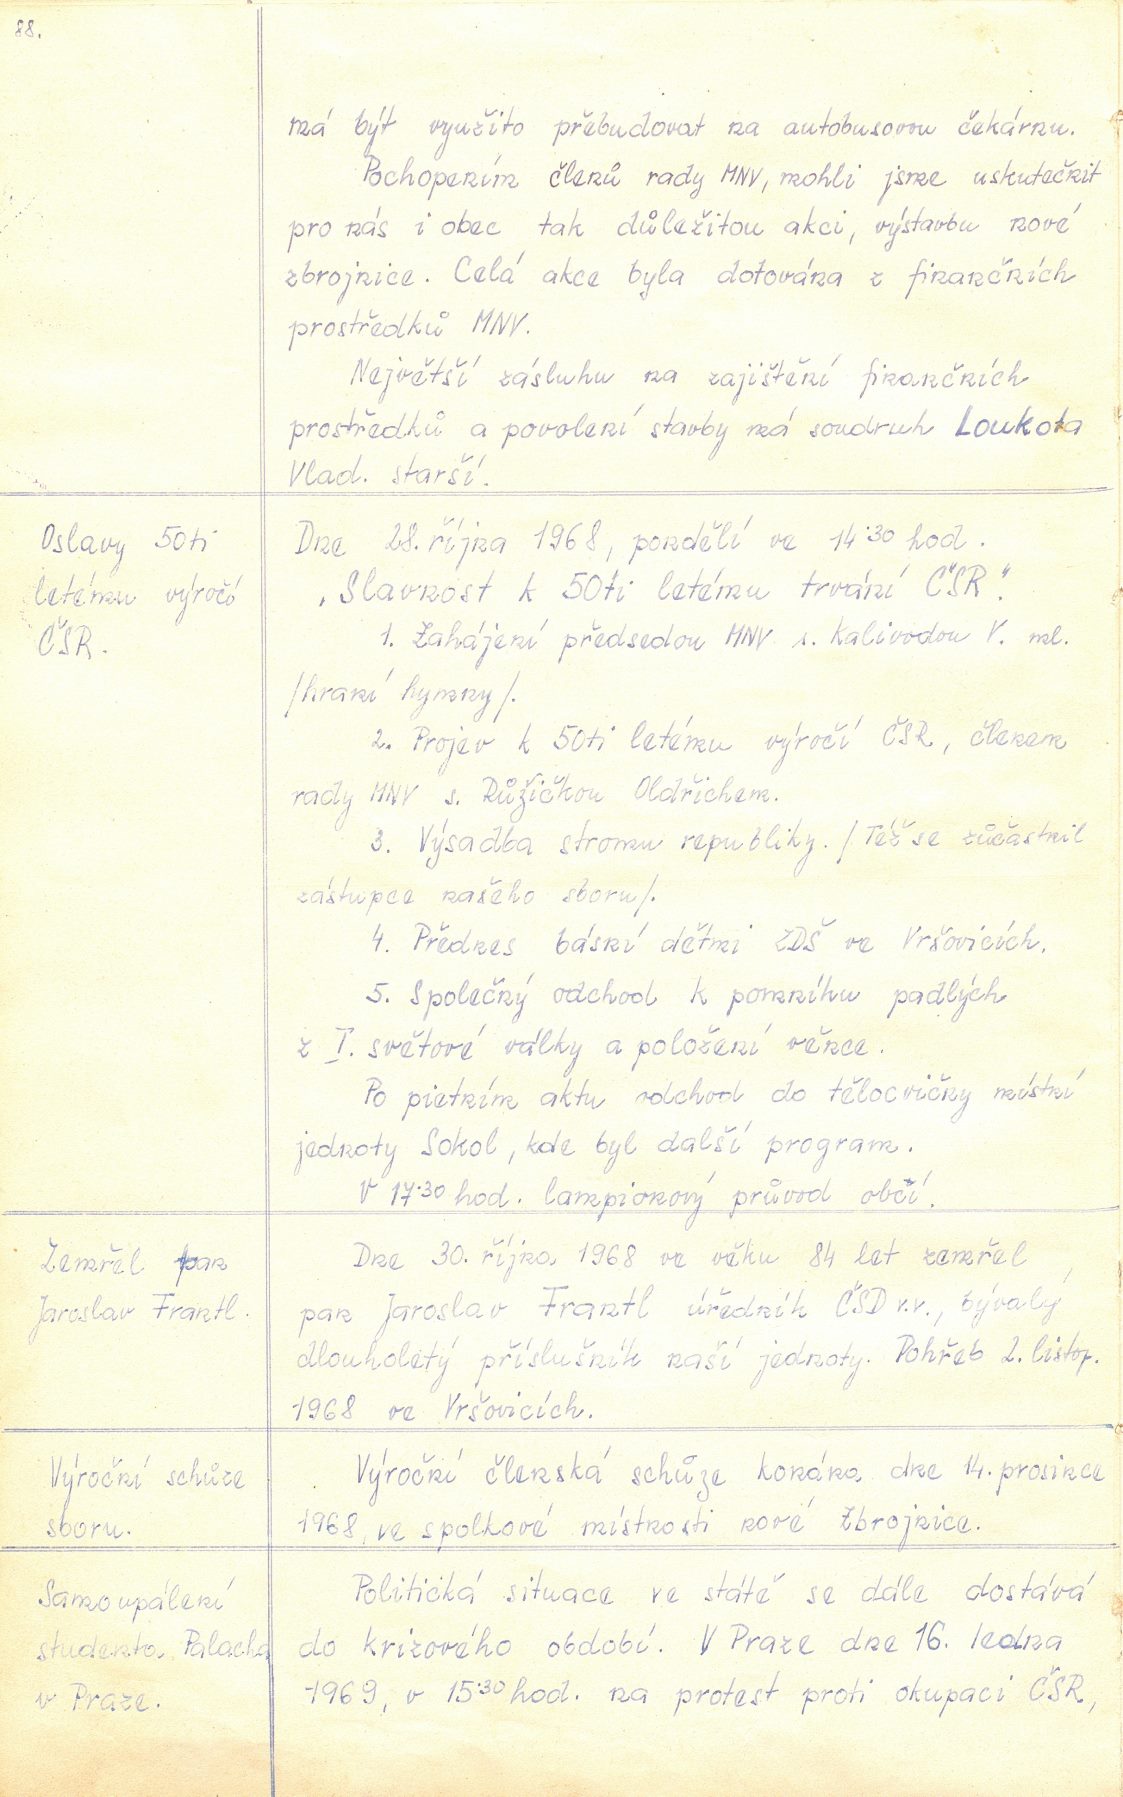 88.
má být využito přebudovat na autobusovou čekárnu.
Pochopením členů rady MNV, mohli jsme uskutečnit
pro nás i obec tak důležitou akci, výstavbu nové
zbrojnice. Celá akce byla dotována z finančních
prostředků MNV.
Největší zásluhu na zajištění finančních
prostředků a povolení stavby má soudruh Loukota
Vlad. starší.
Oslavy 50ti
letému výročí
ČSR.
Dne 28. října 1968, pondělí ve 14·30 hod.
„Slavnost k 50ti letému trvání ČSR“.
1. Zahájení předsedou MNV s. Kalivodou V. ml.
/hraní hymny/.
2. Projev k 50ti letému výročí ČSR, členem
rady MNV s. Růžičkou Oldřichem.
3. Výsadba stromu republiky. /Též se zúčastnil
zástupce našeho sboru/.
4. Přednes básní dětmi ZDŠ ve Vršovicích.
5. Společný odchod k pomníku padlých
z I. světové války a položení věnce.
Po pietním aktu odchod do tělocvičny místní
jednoty Sokol, kde byl další program.
V 17·30 hod. lampionový průvod obcí.
Zemřel pan
Jaroslav Frantl.
Dne 30. října 1968 ve věku 84 let zemřel
pan Jaroslav Frantl úředník ČSD v.v., bývalý
dlouholetý příslušník naší jednoty. Pohřeb 2. listop.
1968 ve Vršovicích.
Výroční schůze
sboru.
Výroční členská schůze konána dne 14. prosince
1968, ve spolkové místnosti nové zbrojnice.
Samoupálení
studenta Palacha
v Praze.
Politická situace ve státě se dále dostává
do krizového období. V Praze dne 16. ledna
1969, v 15·30 hod. na protest proti okupaci ČSR,